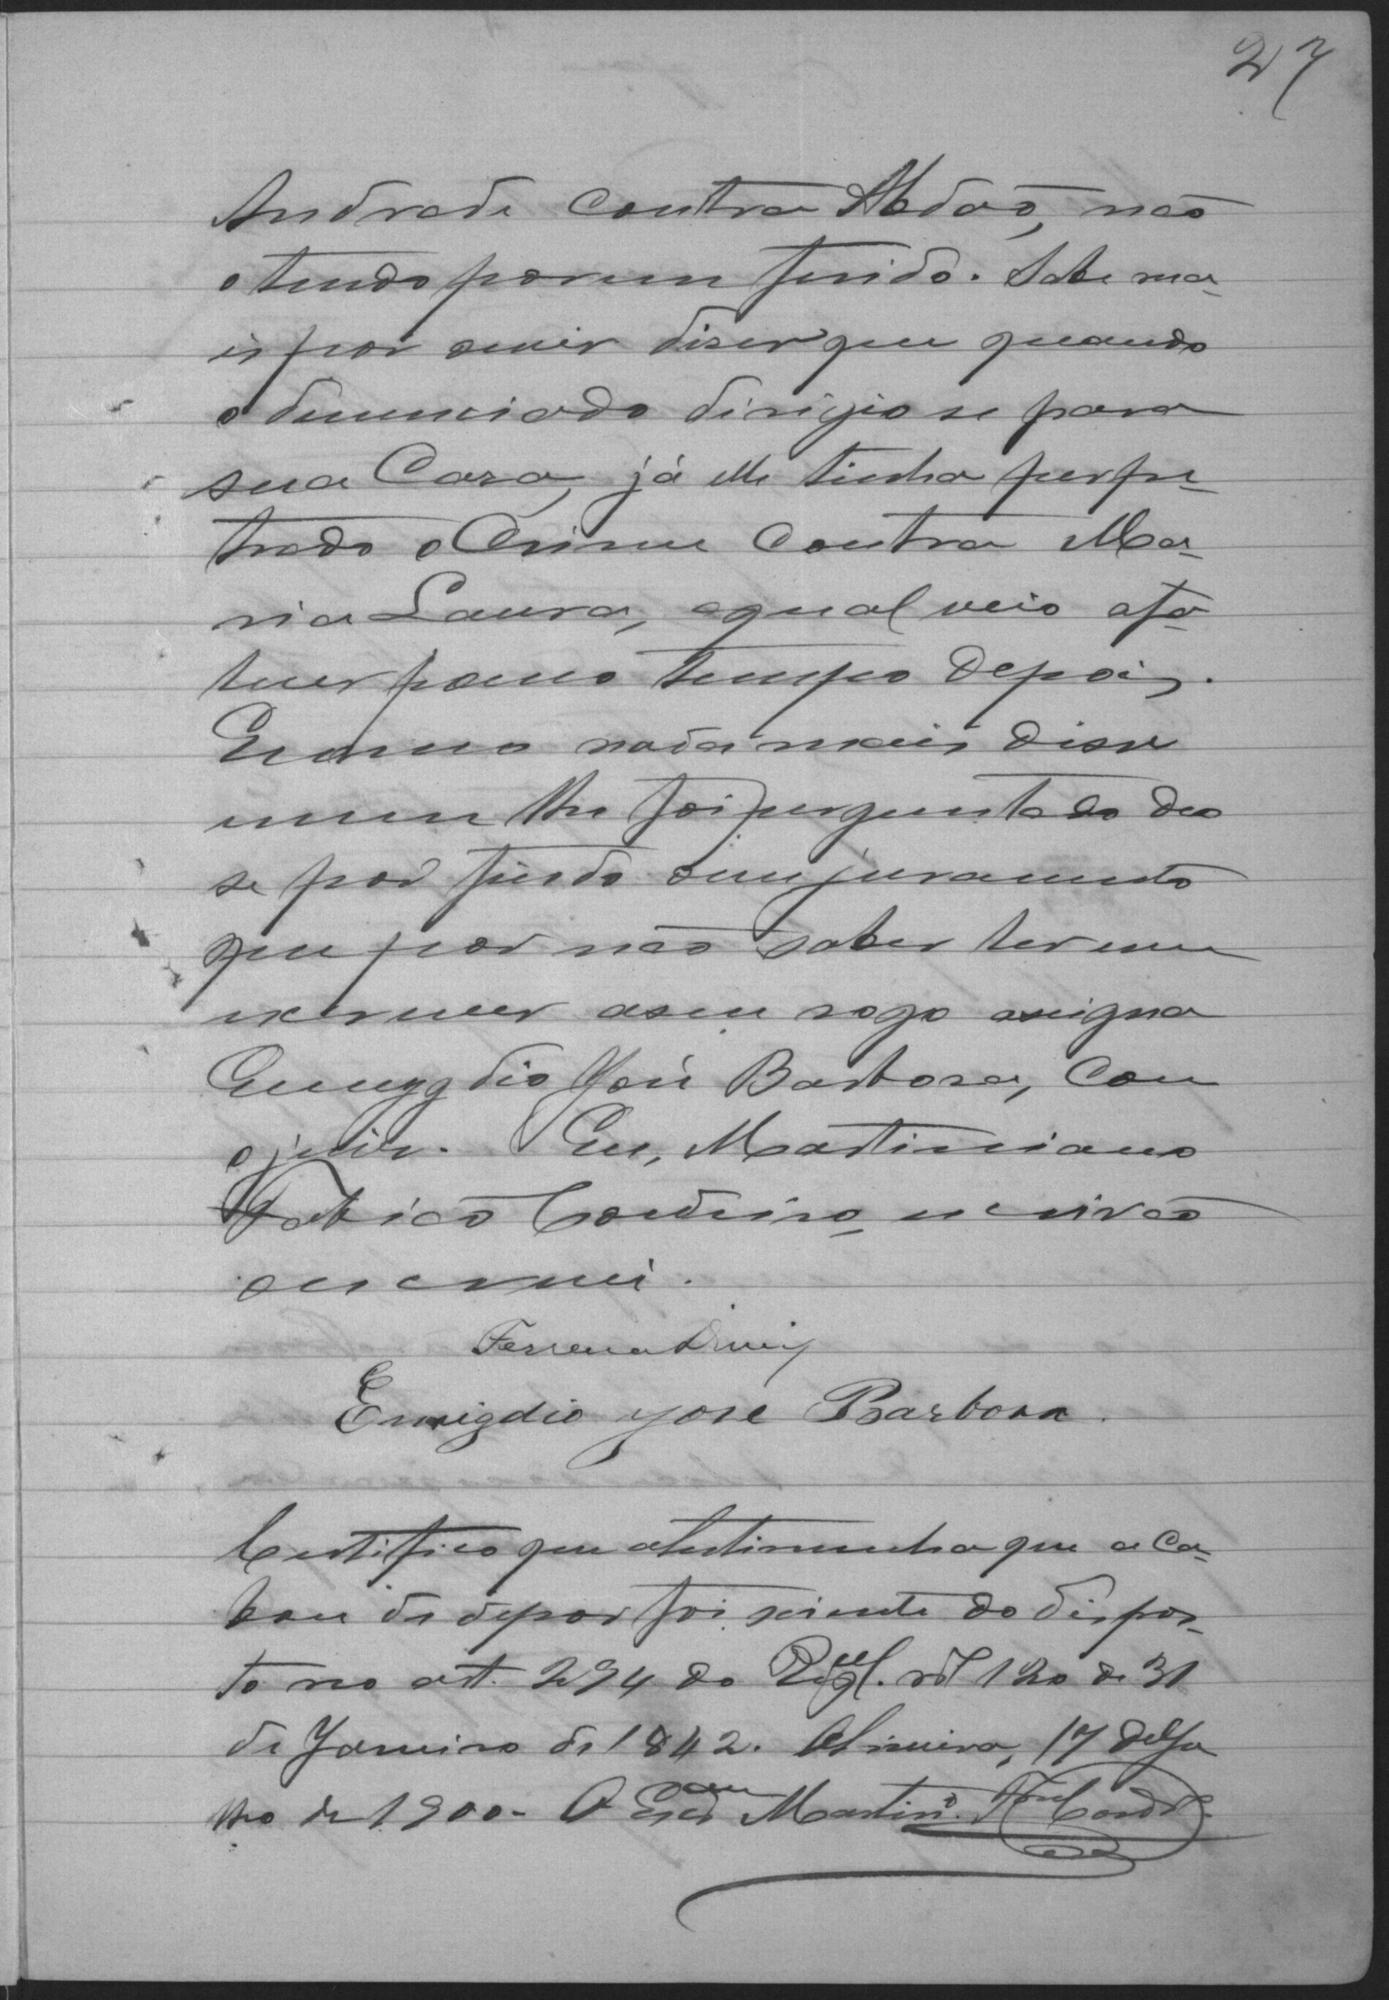 27
Andrade contra Abdão, não
o tendo porem ferido. Sabe ma-
is por ouvir diser que quando
o denunciado dirigio se para
sua Casa, já elle tinha perpe-
trado o Crime contra Ma-
ria Laura, a qual veio a fa-
lecer pouco tempo depois.
E como nada mais disse
nem lhe foi perguntado deo
se por findo seu juramento
que por não saber ler nem
escrever a seu rogo assigna
Emygdio José Barbosa, com
o juiz. Eu, Martiniano
Fabicio Cordeiro, escrivão
o escrevi.
Ferreira Diniz
Emigdio Jose Barbosa.
Certifico que a testimunha que aca-
bou de depor foi sciente do dispos-
to no art. 294 do Regul. nº 120 de 31
de Janeiro de 1842. 17 de Ju
lho de 1900. O Escam Martin.º Cord.º